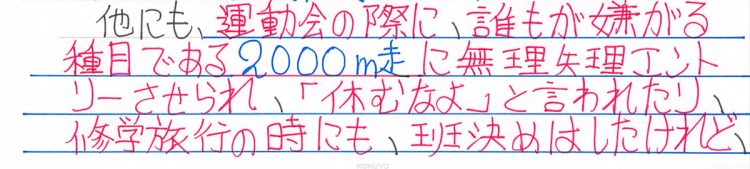 他にも、運動会の際に、誰もが嫌がる
種目である2000m走に無理矢理エント
リーさせられ、「休むなよ」と言われたり、
修学旅行の時にも、班決めはしたけれど、
KOKUYO